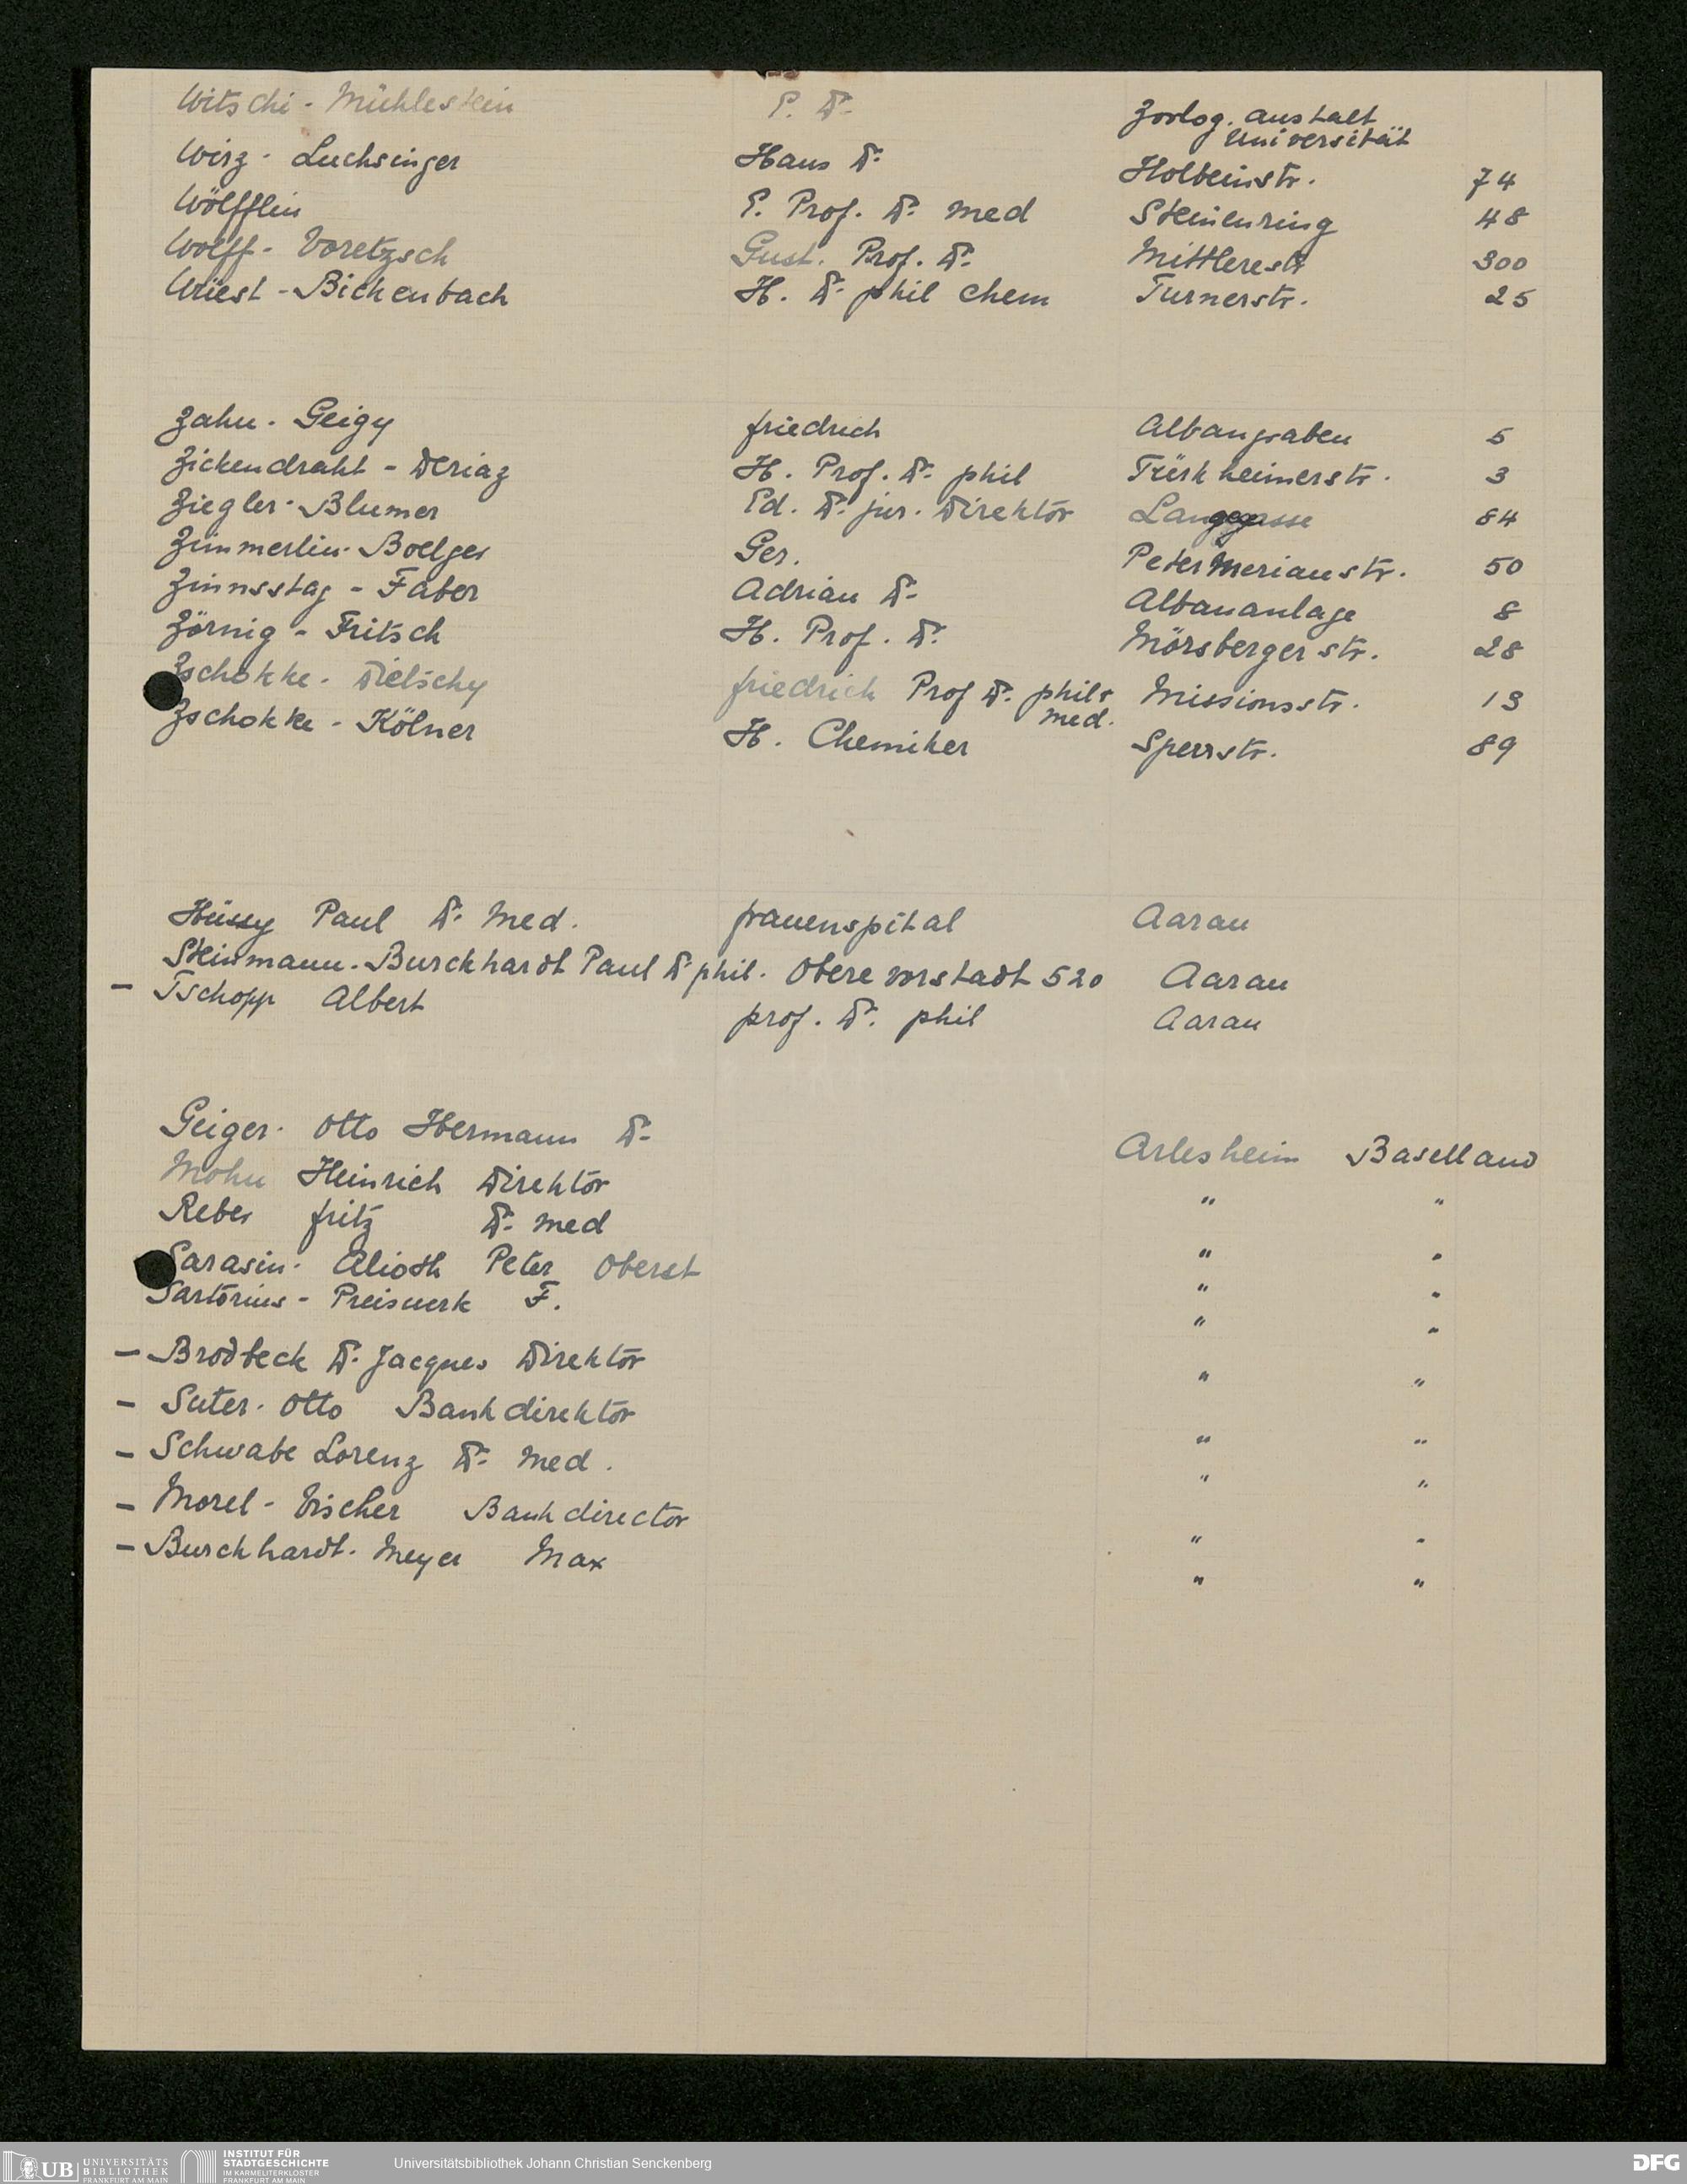 Witschi - Mühlestein E. Dr. Zoolog. Anstalt
Universität
Wirz - Luchsinger Hans Dr. Holbeinstr. 74
Wölfflin E. Prof. Dr. med Steinenring 48
Wolff - Voretzsch Gust. Prof. Dr. Mittlerestr 300
Wüest - Bickenbach H. Dr. phil Chem Turnerstr. 25
Zahn - Geigy Friedrich Albangraben 5
Zickendraht - Deriaz H. Prof. Dr. phil Türkheimerstr. 3
Ziegler - Blumer Ed. Dr. jur. Direktor Langegasse 84
Zimmerlin - Boelger Ger. Peter Merianstr. 50
Zinnsstag - Faber Adrian Dr. Albananlage 8
Zörnig - Fritsch H. Prof. Dr. Mörsbergerstr. 28
Zschokke - Dietschy Friedrich Prof Dr. phil & Missionsstr. 13
med.
Zschokke - Kölner H. Chemiker Sperrstr. 89
Hüssy Paul Dr. med. Frauenspital Aarau
Steinmann - Burckhardt Paul Dr phil. Obere Vorstadt 520 Aarau
- Tschopp Albert prof. Dr. phil Aarau
Geiger - Otto Hermann Dr. Arlesheim Baselland
Mohn Heinrich Direktor " "
Reber Fritz Dr. med " "
Sarasin - Alioth Peter Oberst " "
Sartorius - Preiswerk F. " "
- Brodbeck Dr. Jacques Direktor " "
- Suter - Otto Bankdirektor " "
- Schwabe Lorenz Dr. med. " "
- Morel - Vischer Bankdirector " "
- Burckhardt - Meyer Max " "
UB UNIVERSITÄTS
BIBLIOTHEK
FRANKFURT AM MAIN
INSTITUT FÜR
STADTGESCHICHTE
IM KARMELITERKLOSTER
FRANKFURT AM MAIN
Universitätsbibliothek Johann Christian Senckenberg
DFG